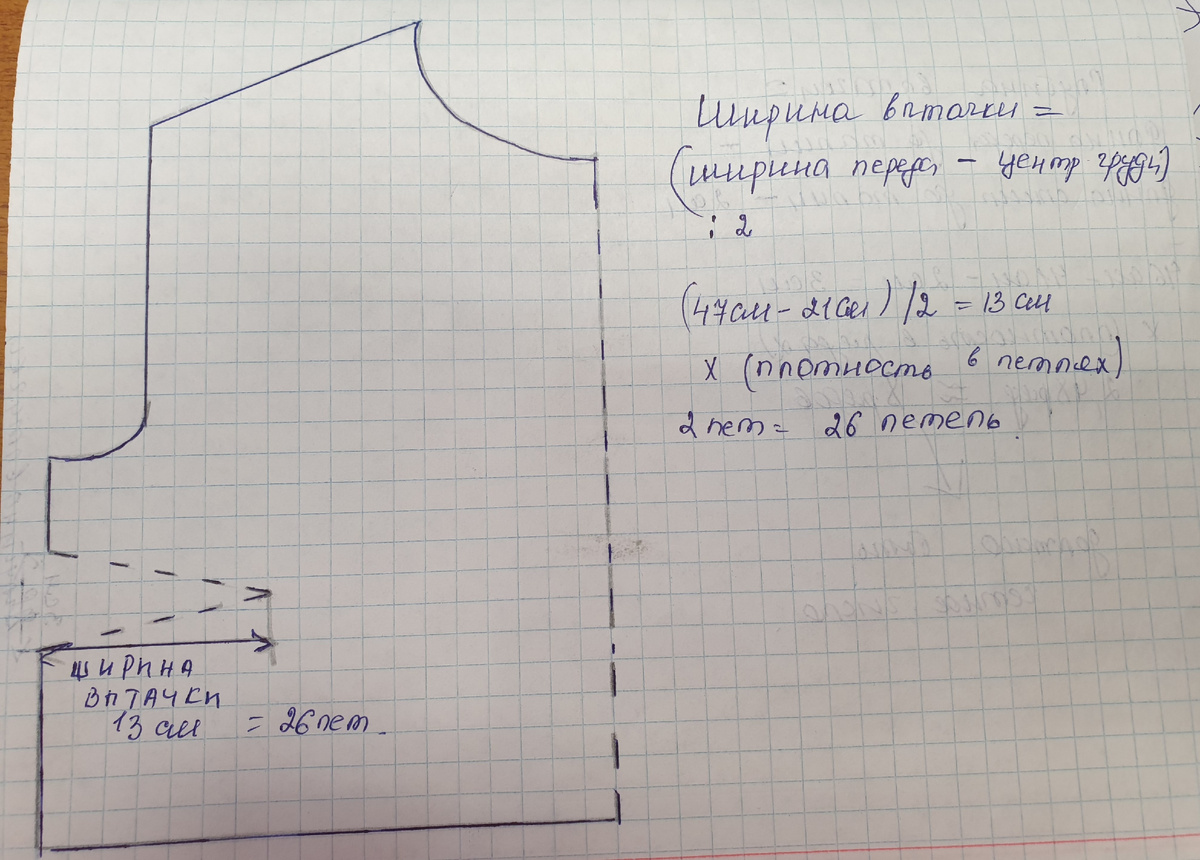 Ширина вытачки =
(ширина переда - центр груди)
: 2
(47см - 21см) /2 = 13 см
х (плотность в петлях)
2 пет = 26 петель.
ШИРИНА
ВЫТАЧКИ
13 см = 26 пет.